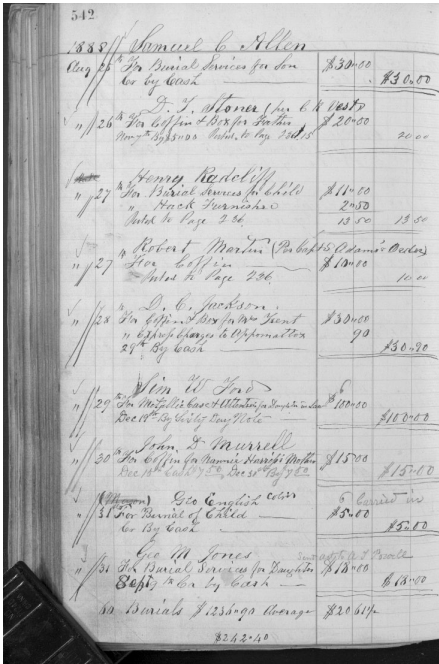 542
1888 Samuel C Allen
Aug 25th For Burial Services for Son $30.00
Cr by Cash $30.00
D. T. Stoner (per C H Vest)
" 26th For Coffin & Box for Father $20.00
Posted to Page 20 00
Henry Radcliff
" 27th For Burial Services for Child $11.00
" Hack Furnished 2.50
Posted to Page 236 13 50 13 50
" Robert Martin (Per Capt S Adams Order)
" 27 For Coffin $10.00
Posted to Page 236. 10 00
" D. C. Jackson
" 28 For Coffin & Box for Mrs Trent $30.00
" Express Charges to Appomattox 90
29th By Cash $30.90
Sim W Ford
" 29th For Metallic Case & Attention for Daughter in Law $100.00
Dec 19th By Sixty Day Note $100.00
John D Murrell
" 30 For Coffin for Nannie Harris's Mother $15.00
Dec 19th Cash 7 50, Dec 31st By 7 50 $15.00
Geo English Color Carried in
" 31 For Burial of Child $5.00
Cr By Cash $5.00
Geo M Jones
" 31 For Burial Services for Daughter $18.00
Sept Cr by Cash $18.00
60 Burials $1236.90 Average $20 61½
$242.40